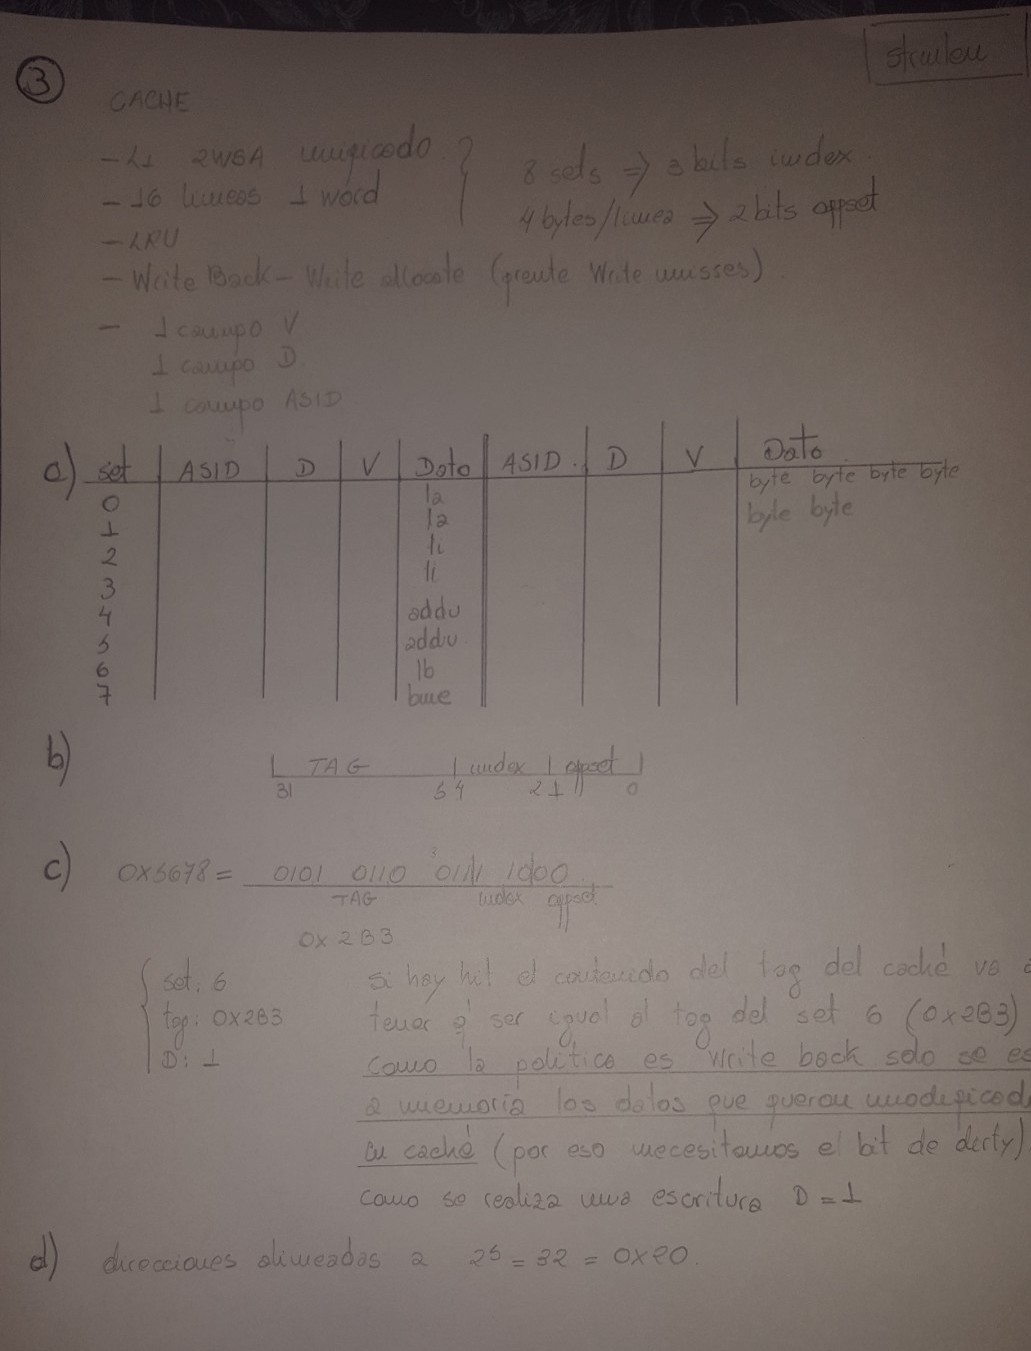 3
CACHE
- L1 2WSA unificado
- 16 lineas 1 word
8 sets => 3 bits index
4 bytes/linea => 2 bits offset
- LRU
- Write Back - Write allocate (frente Write misses)
- 1 campo V
1 campo D
1 campo ASID
a) set ASID D V Dato ASID D V Dato
0 la byte byte byte byte
1 la byte byte
2 li
3 li
4 addu
5 addu
6 lb
7 bne
b) TAG index offset
31 5 4 2 1 0
c) 0x5678 = 0101 0110 0111 1000
TAG index offset
0x2B3
set: 6
tag: 0x2B3
D: 1
si hay hit el contenido del tag del caché va a
tener q' ser igual al tag del set 6 (0x2B3)
como la politica es write back solo se es
a memoria los datos que fueron modificad
en caché (por eso necesitamos el bit de dirty)
como se realiza una escritura D = 1
d) direcciones alineadas a 2^5 = 32 = 0x20.